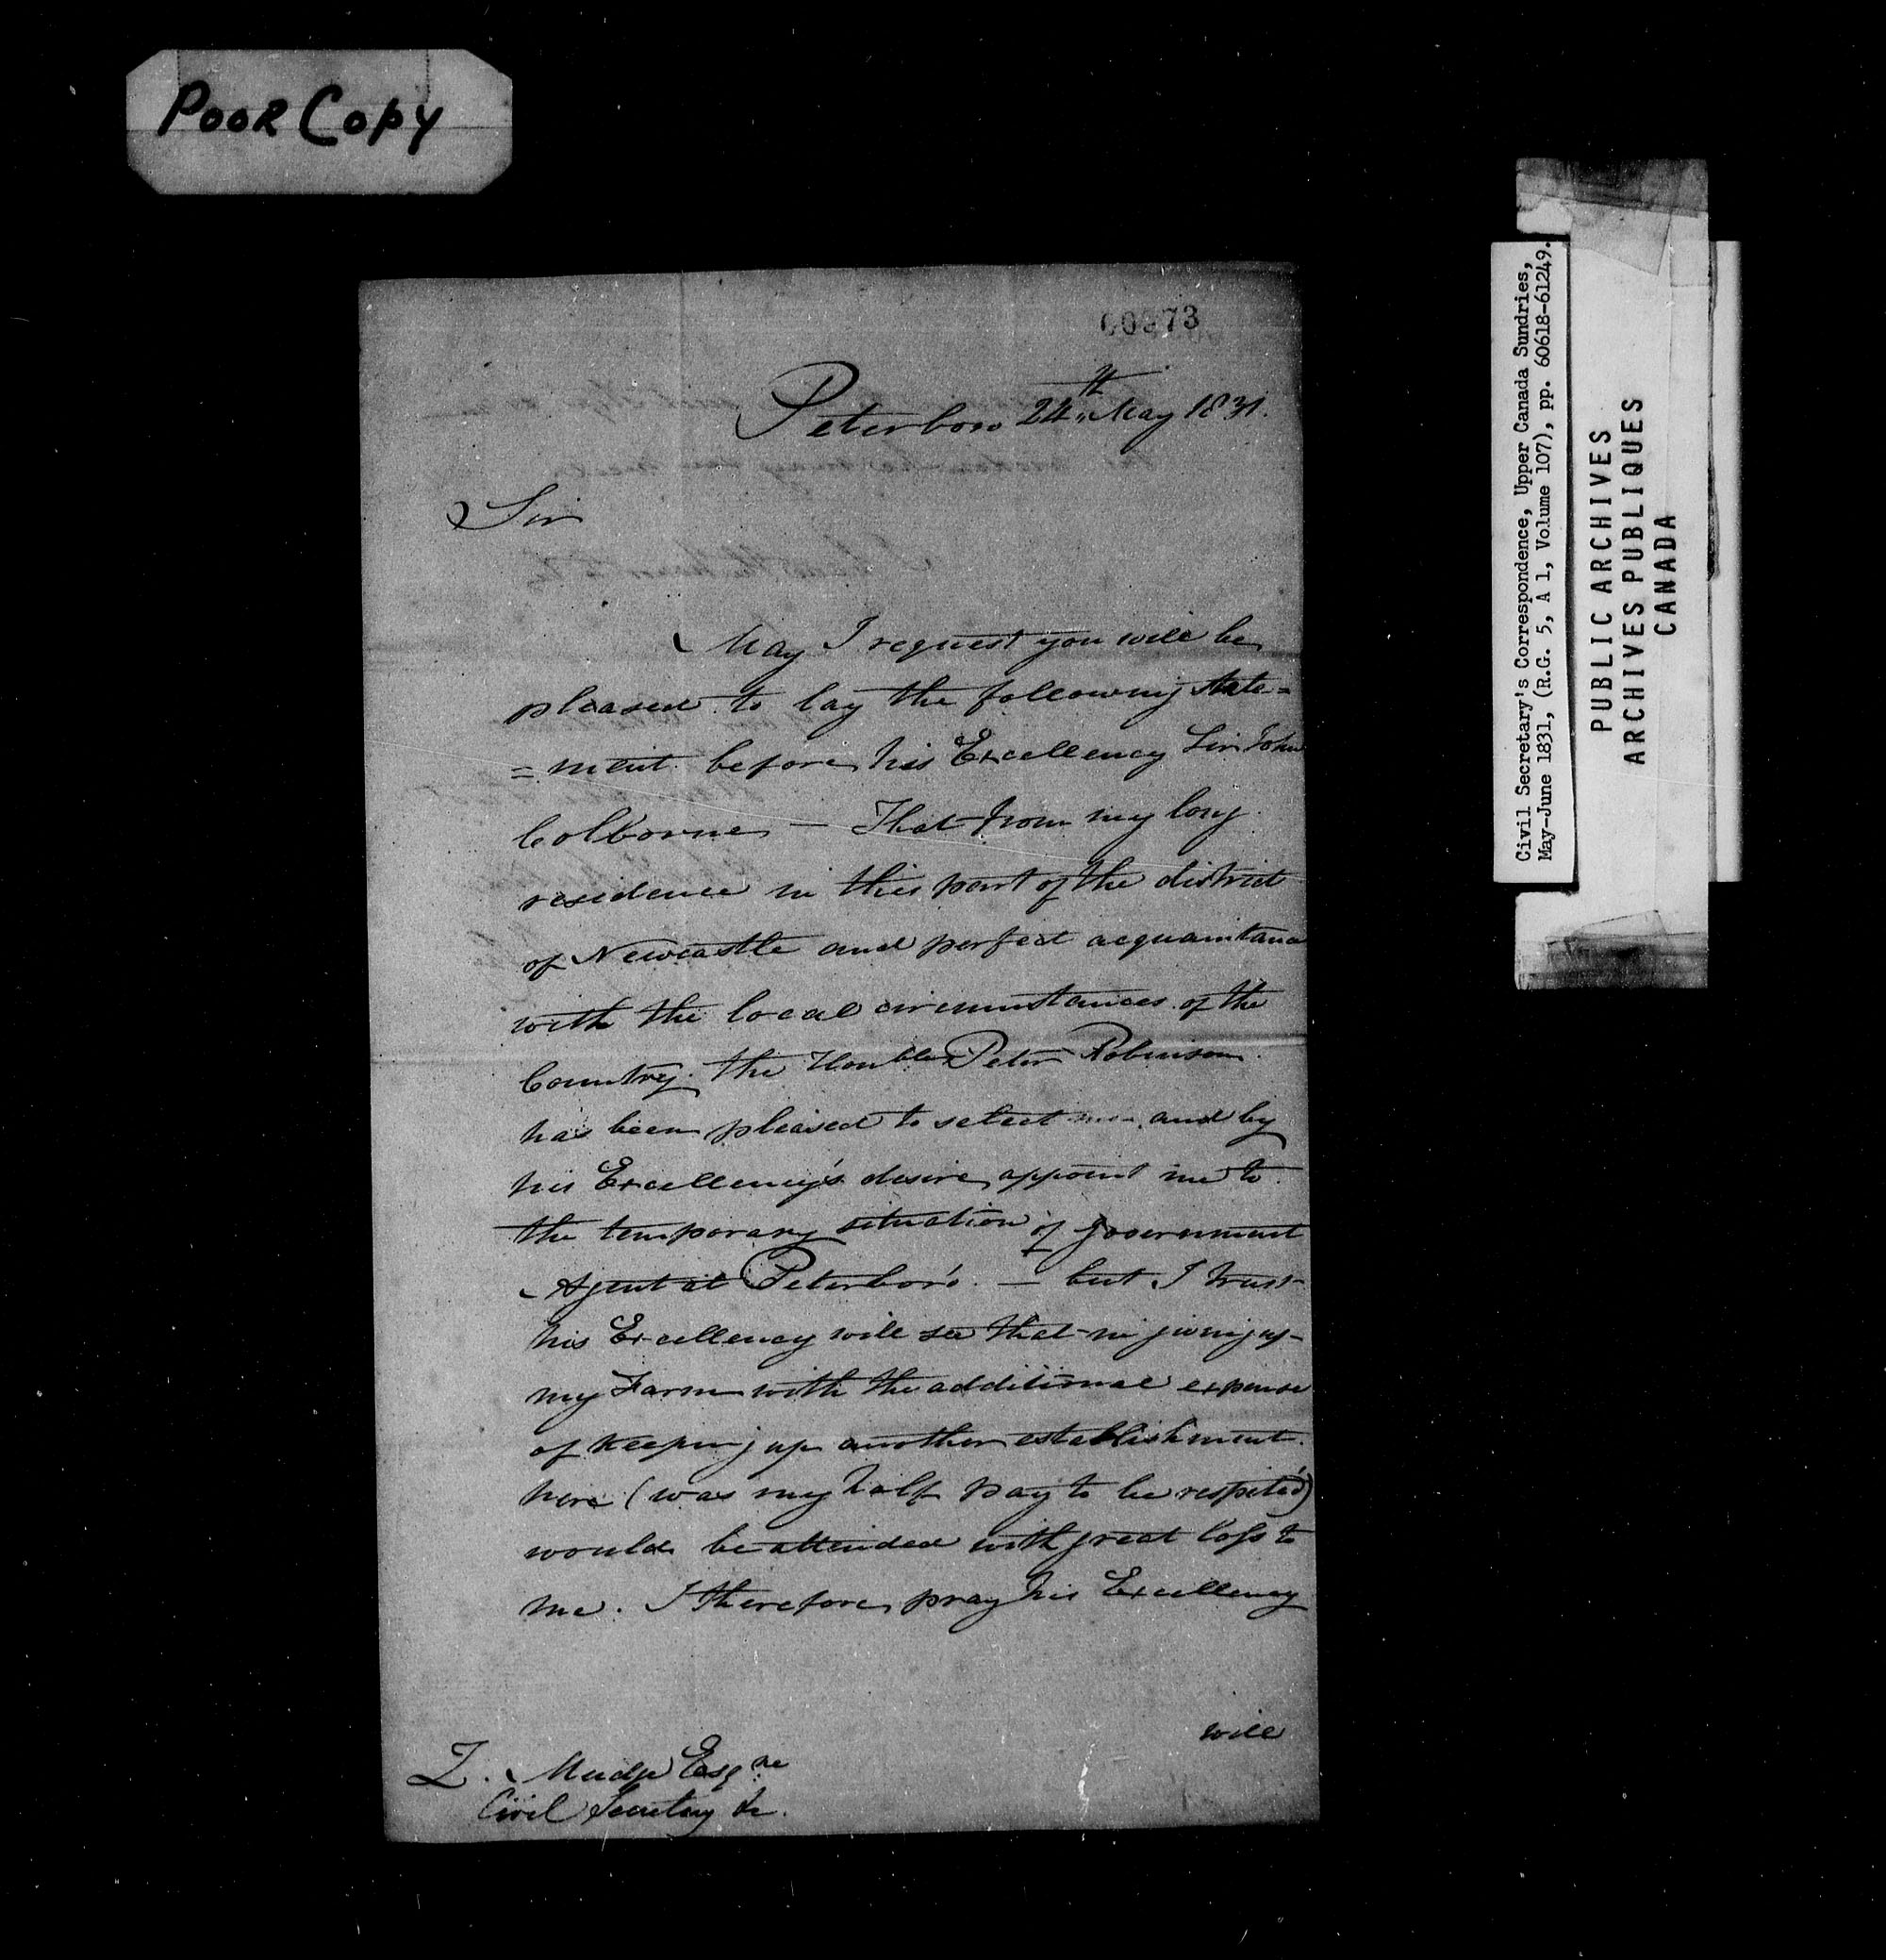 POOR COPY
Peterboro 24th May 1831.
Sir
May I request you will be
pleased to lay the following state=
=ment before his Excellency Sir John
Colborne — That from my long
residence in this part of the district
of Newcastle and perfect acquaintance
with the local circumstances of the
Country. the Honble Peter Robinson
has been pleased to select me and by
his Excellency's desire appoint me to
the temporary situation of government
Agent at Peterboro'. — but I trust
his Excellency will see that in giving up
my Farm with the additional expense
of keeping up another establishment
here (was my half pay to be respited)
would be attended with great loss to
me. I therefore pray his Excellency
will
Z. Mudge Esqre
Civil Secretary &c.
Civil Secretary's Correspondence, Upper Canada Sundries,
May-June 1831, (R.G. 5, A 1, Volume 107), pp. 60618-61249.
PUBLIC ARCHIVES
ARCHIVES PUBLIQUES
CANADA